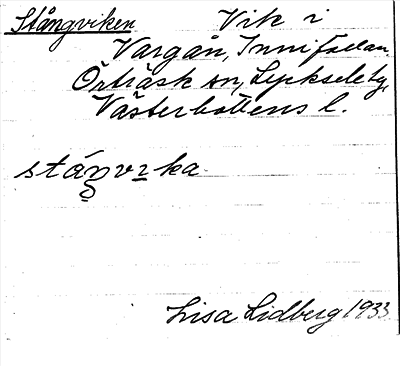 Stångviken Vik i
Vargån, Innifallan.
Örträsk sn, Lycksele tg,
Västerbottens l.
stáŋvɩka.
Lisa Lidberg 1933